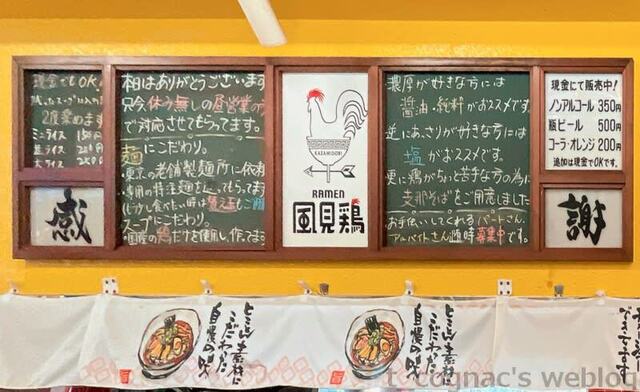 現金でもOK
2度楽めます
ミニライス 150円
並ライス 200円
大ライス
感
相はありがとうございます
只今休う無しの昼営業の
で対応させてもらってます。
麺にこだわり。
・東京の老舗製麺所に依
・専用の特注麺
スープにこだわり。
・国産の鶏だけを使用し、作ってます
KAZAMIDORI
RAMEN
風見鶏
濃厚が好きな方には
醤油・純粋がおススメです。
逆にあっさりが好きな方には
塩がおススメです。
更に鶏がちょっと苦手な方の為に
支那そばをご用意しました
お手伝いしてくれるパートさん、
アルバイトさん随時募集中です。
現金にて販売中!
ノンアルコール 350円
瓶ビール 500円
コーラ・オレンジ 200円
追加は現金でOKです。
謝
とことん素材に
こだわった
自慢の味
とことん素材に
こだわった
自慢の味
t.cognac's weblog